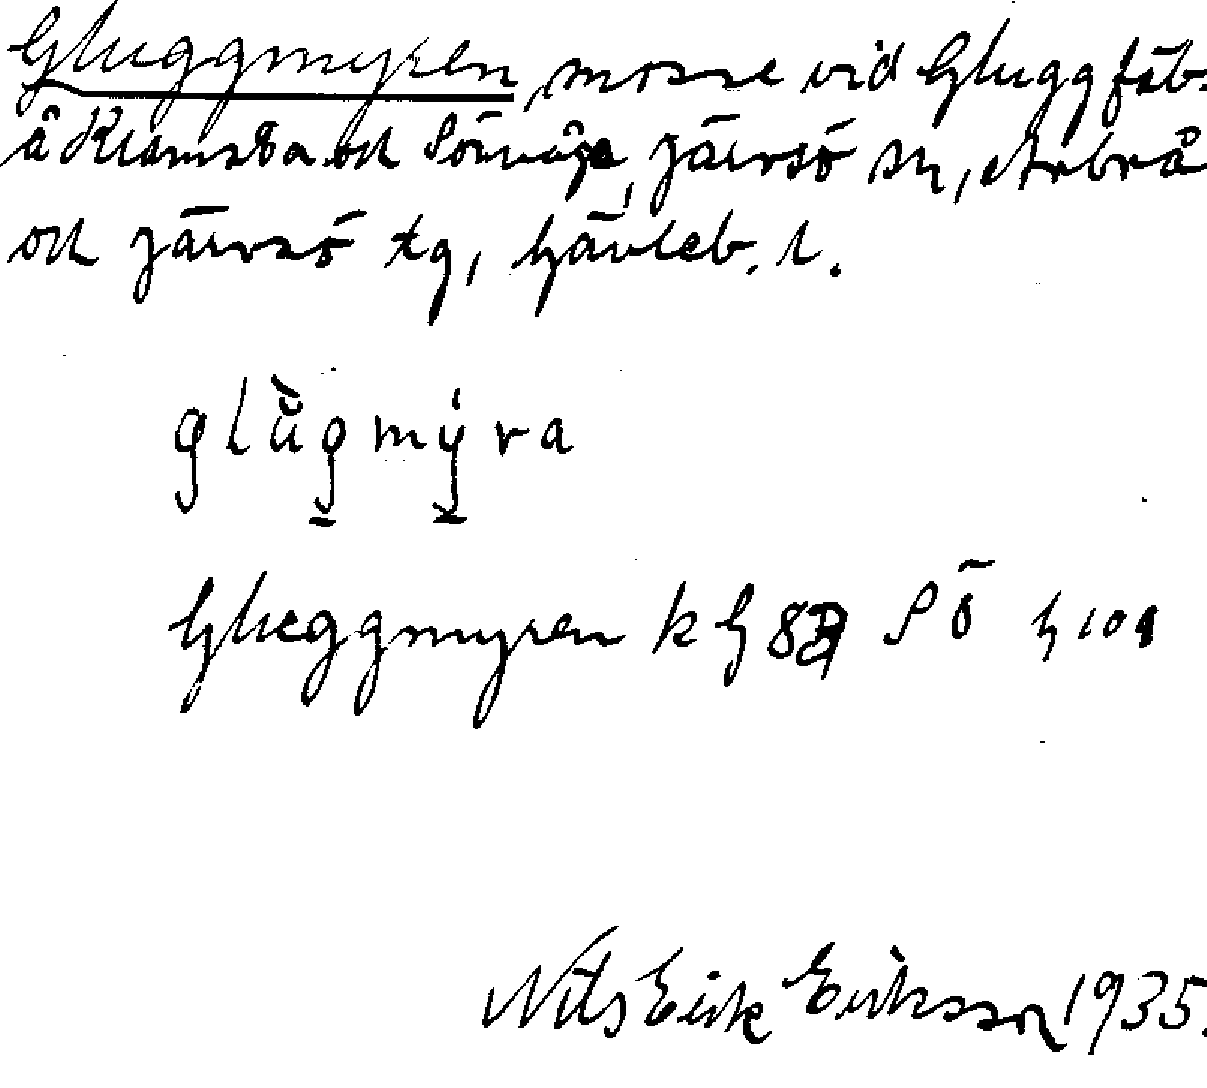 Gluggmyren, mosse vid Gluggfäb.
å Kramsta och Sörvåga, Järvsö sn, Arbrå
och Järvsö tg, Gävleb. l.
glùgmýra
Gluggmyren k G SÖ G 101
Nils Eirik Eiriksson 1935.